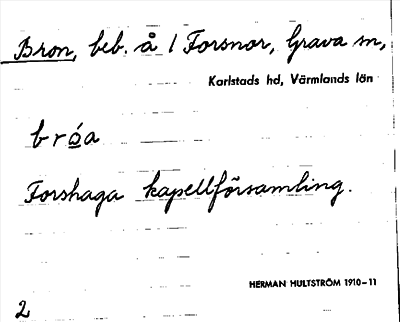 Bron, beb. å 1 Forsnor, Grava sn,
Karlstads hd, Värmlands län
bróa
Forshaga kapellförsamling.
HERMAN HULTSTRÖM 1910-11
2